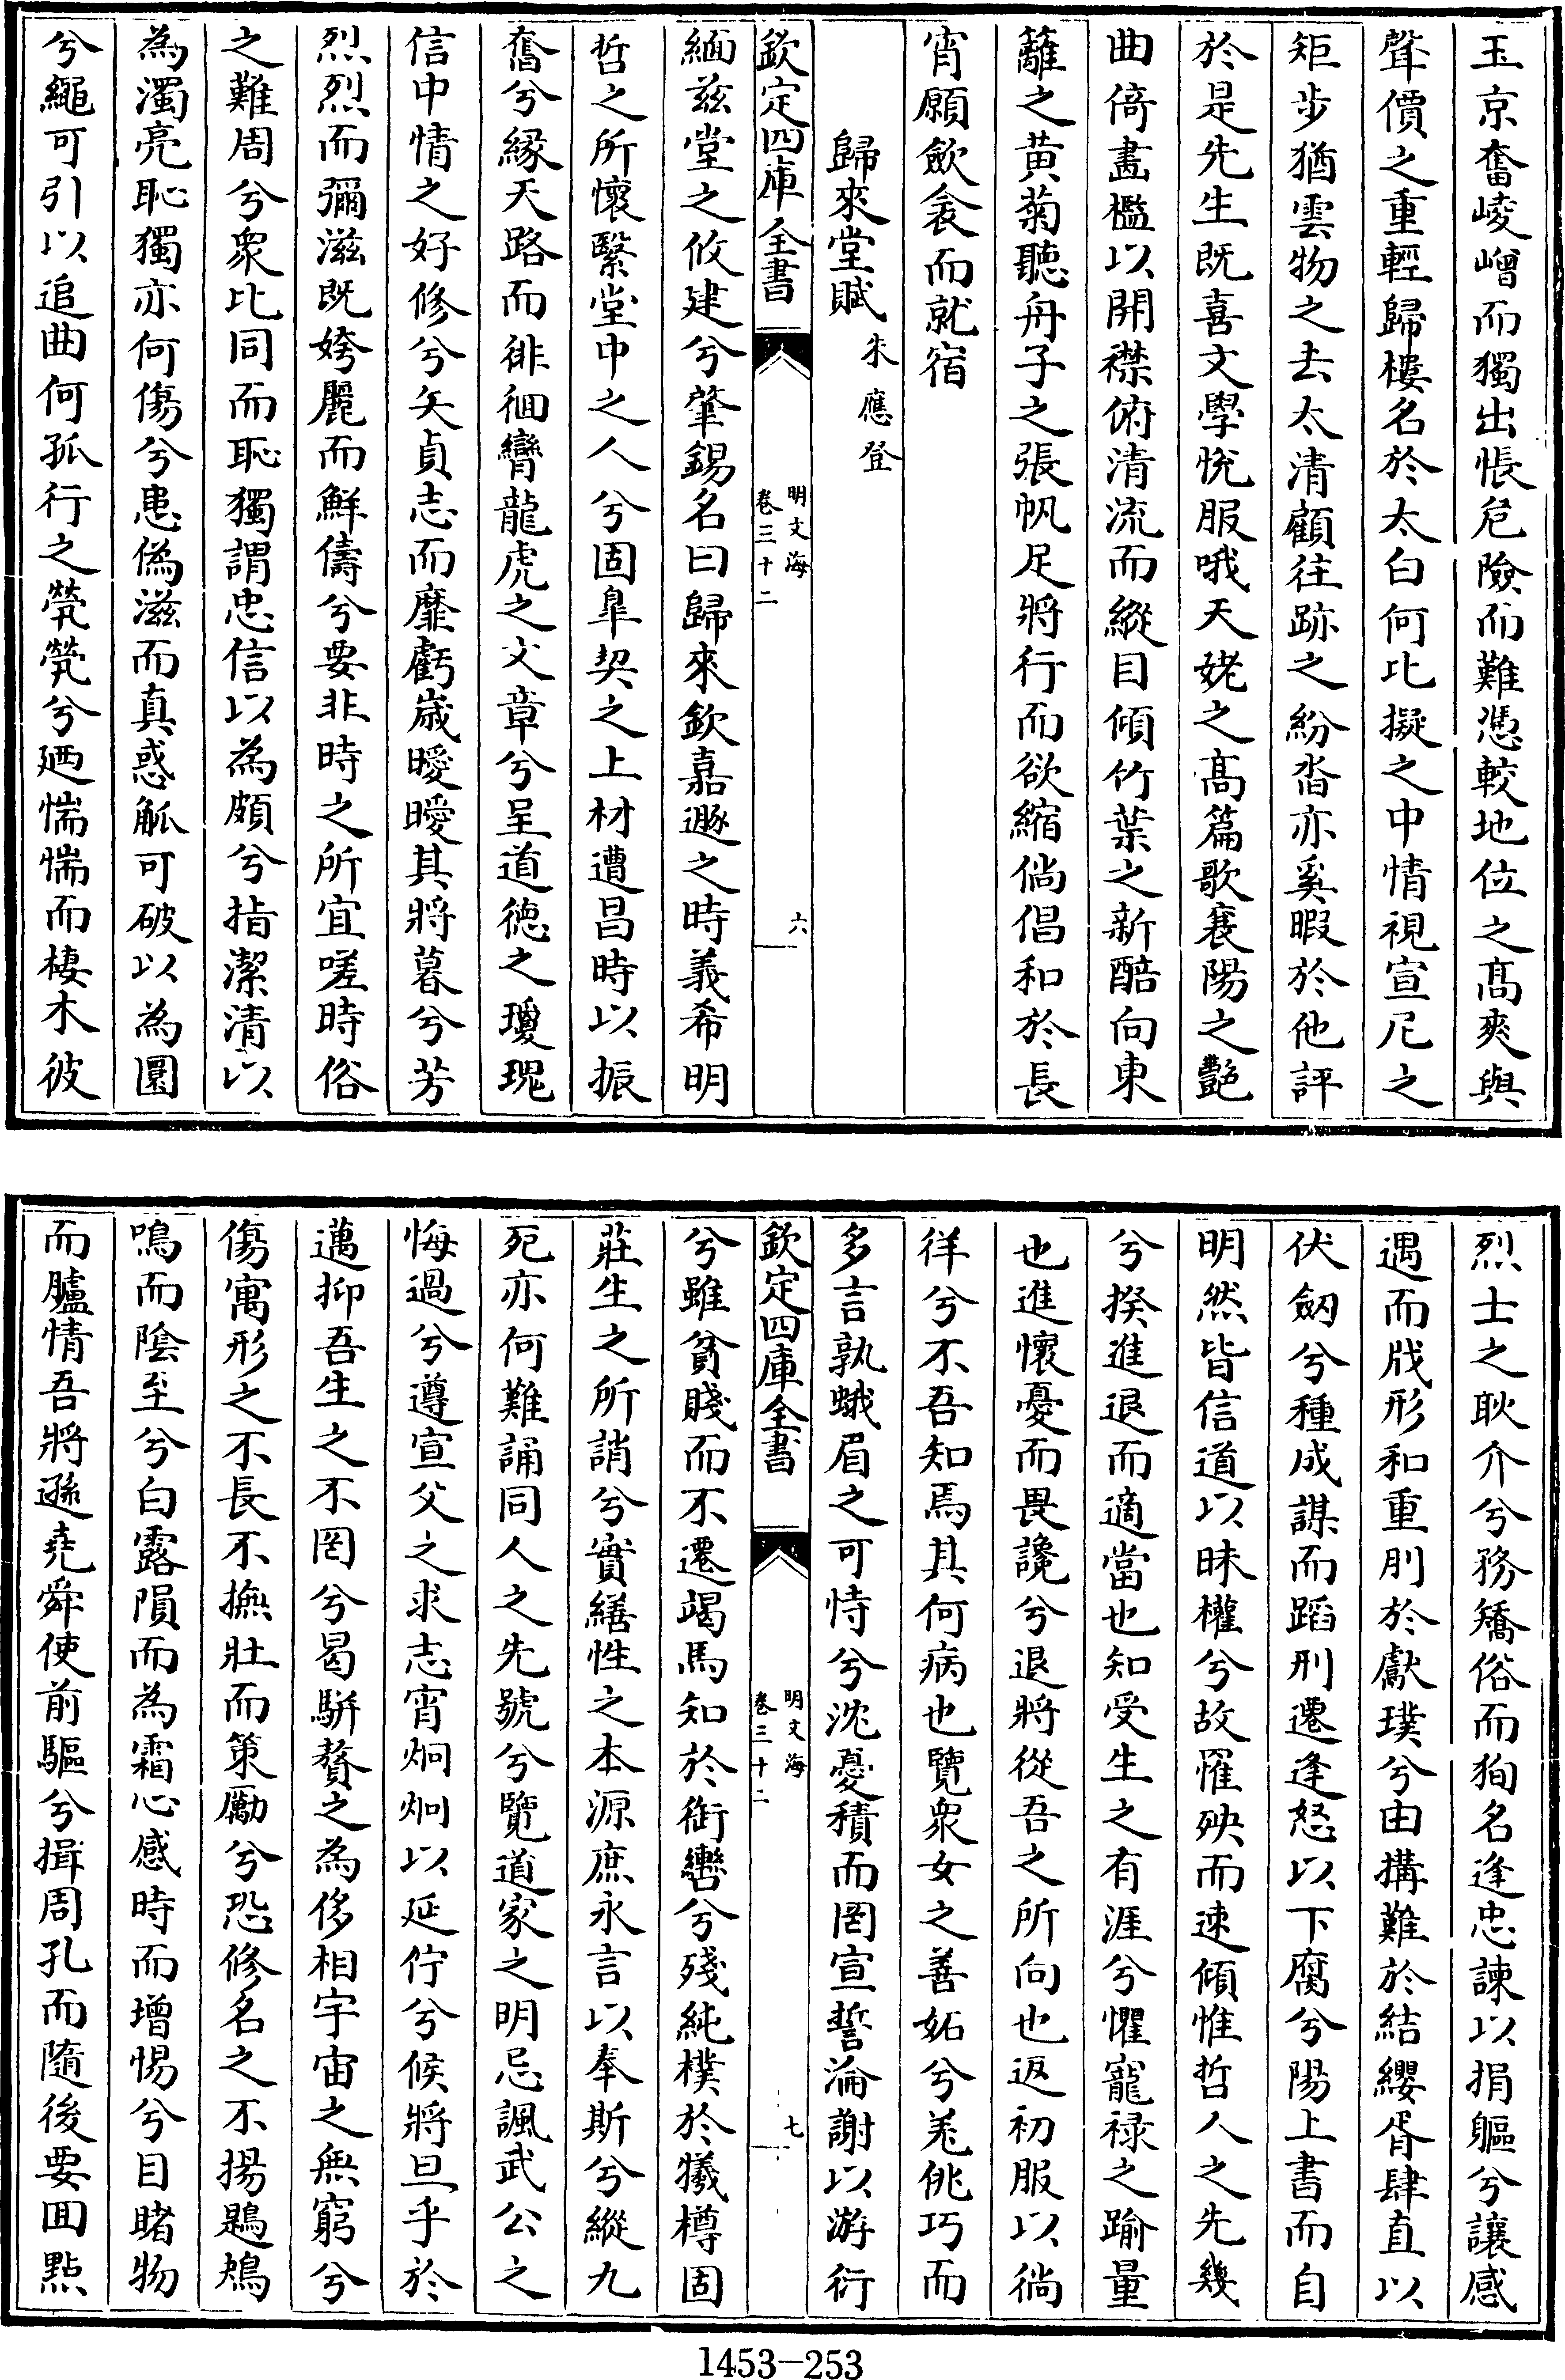 玉京奮崚嶒而獨出悵危險而難憑較地位之髙爽與
聲價之重輕歸樓名於太白何比擬之中情視宣尼之
矩步猶雲物之去太清顧往跡之紛沓亦奚暇於他評
於是先生既喜文學悅服哦天姥之髙篇歌襄陽之艷
曲倚畵檻以開襟俯清流而縱目傾竹葉之新醅向東
籬之黄菊聽舟子之張帆足將行而欲縮倘倡和於長
宵願歛衾而就宿
歸來堂賦 朱應登
欽定四庫全書 明文海 卷三十二 六
緬兹堂之攸建兮肇錫名曰歸來欽嘉遯之時義希明
哲之所懷繄堂中之人兮固臯契之上材遭昌時以振
奮兮縁天路而徘徊彎龍虎之文章兮呈道徳之瓊瑰
信中情之好修兮矢貞志而靡虧嵗曖曖其將暮兮芳
烈烈而彌滋既姱麗而鮮儔兮要非時之所宜嗟時俗
之難周兮衆比同而恥獨謂忠信以為頗兮指潔清以
為濁亮恥獨亦何傷兮患偽滋而真惑觚可破以為圜
兮繩可引以追曲何孤行之煢煢兮廼惴惴而棲木彼
烈士之耿介兮務矯俗而狥名逢忠諫以捐軀兮讓感
遇而戕形和重刖於獻璞兮由搆難於結纓胥肆直以
伏劒兮種成謀而蹈刑遷逢怒以下腐兮陽上書而自
明然皆信道以昧權兮故罹殃而速傾惟哲人之先幾
兮揆進退而適當也知受生之有涯兮懼寵禄之踰量
也進懷憂而畏讒兮退將從吾之所向也返初服以徜
徉兮不吾知焉其何病也覽衆女之善妬兮羌佻巧而
多言孰蛾眉之可恃兮沈憂積而罔宣誓淪謝以游衍
欽定四庫全書 明文海 卷三十二 七
兮雖貧賤而不遷竭馬知於銜轡兮殘純樸於犧樽固
莊生之所誚兮實繕性之本源庶永言以奉斯兮縱九
死亦何難誦同人之先號兮覽道家之明忌諷武公之
悔過兮遵宣父之求志宵炯炯以延佇兮候將旦乎於
邁抑吾生之不罔兮曷駢贅之為侈相宇宙之無窮兮
傷寓形之不長不撫壯而策勵兮恐修名之不揚鶗鴂
鳴而陰至兮白露隕而為霜心感時而增惕兮目睹物
而臚情吾將遜堯舜使前驅兮揖周孔而隨後要回點
1453-253